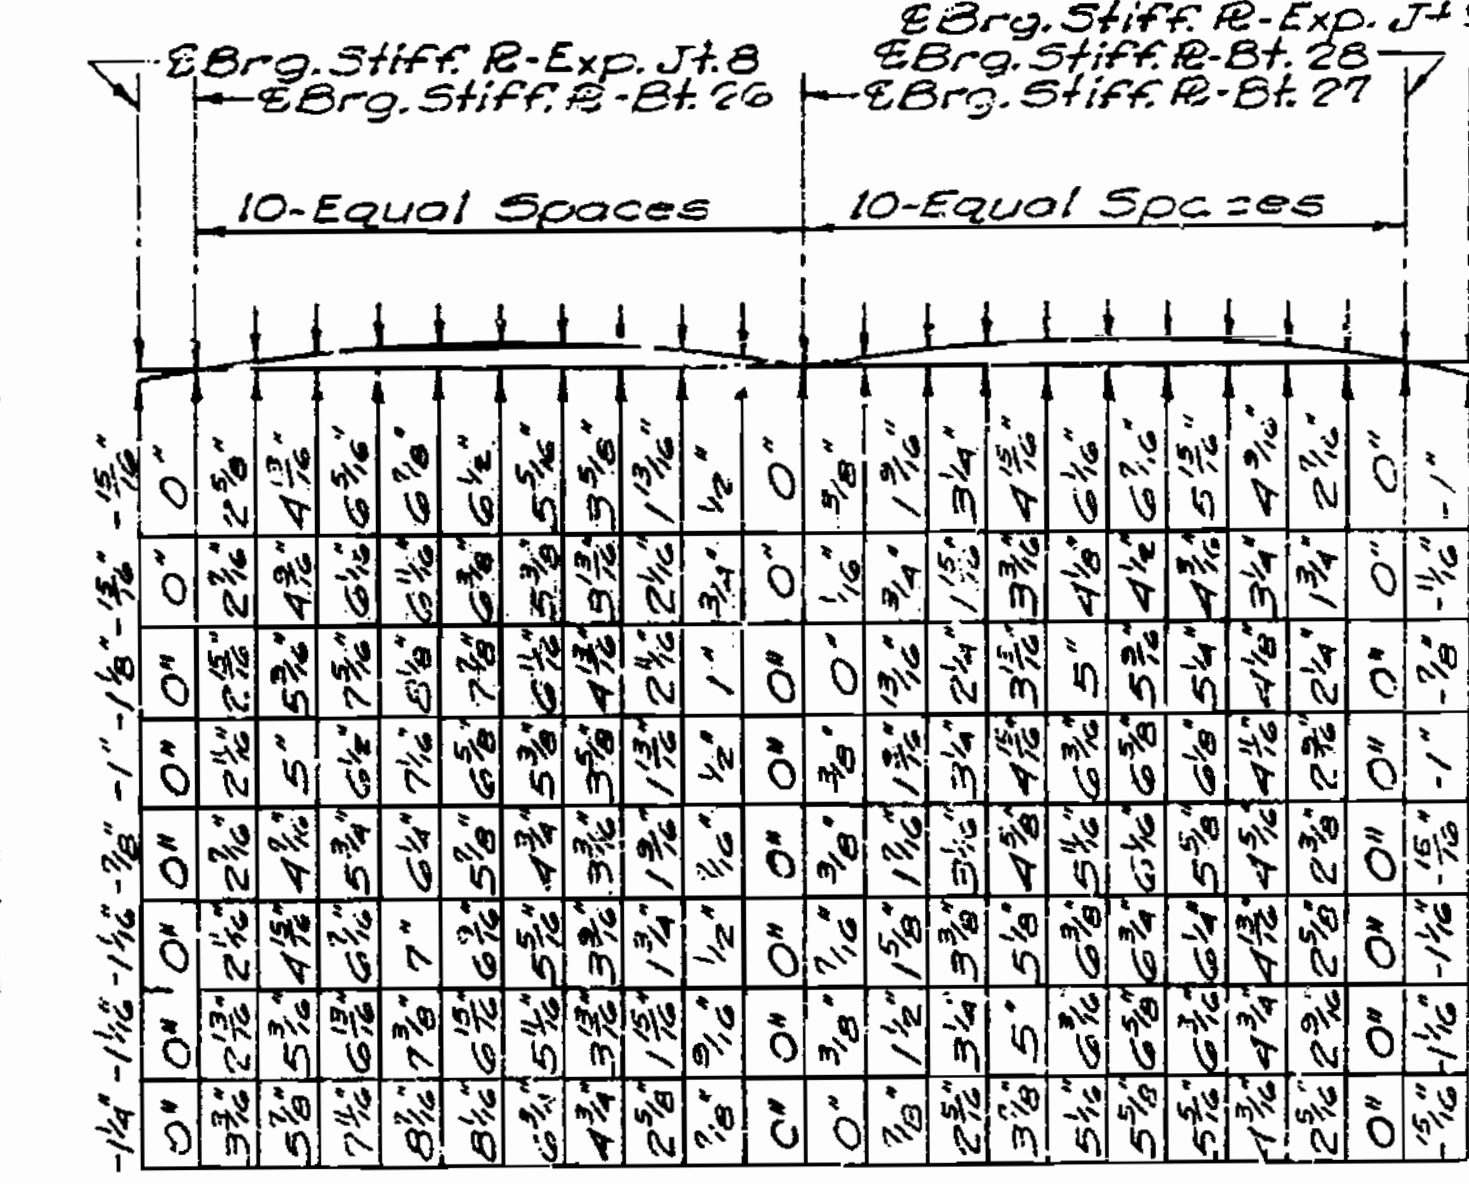 ℄ Brg. Stiff. ℞-Exp. Jt
℄ Brg. Stiff. ℞-Exp. Jt. 8 ℄ Brg. Stiff. ℞-Bt. 28
℄ Brg. Stiff. ℞-Bt. 26 ℄ Brg. Stiff. ℞-Bt. 27
10-Equal Spaces 10-Equal Spaces
-15/16" 0" 2 5/8" 4 13/16" 6 5/16" 6 7/8" 6 1/2" 5 5/16" 3 5/8" 1 13/16" 1/2" 0" 3/8" 1 9/16" 3 1/4" 4 15/16" 6 1/16" 6 7/16" 5 15/16" 4 9/16" 2 7/16" 0" -1"
-15/16" 0" 2 7/16" 4 9/16" 6 1/16" 6 11/16" 6 3/8" 5 3/8" 3 13/16" 2 1/16" 3/4" 0" 1/16" 3/4" 1 15/16" 3 3/16" 4 1/8" 4 1/2" 4 3/16" 3 1/4" 1 3/4" 0" -11/16"
-1 1/8" 0" 2 15/16" 5 3/16" 7 5/16" 8 1/8" 7 7/8" 6 11/16" 4 13/16" 2 11/16" 1" 0" 0" 13/16" 2 1/4" 3 15/16" 5" 5 9/16" 5 1/4" 4 1/8" 2 1/4" 0" -7/8"
-1" 0" 2 11/16" 5" 6 1/2" 7 1/16" 6 5/8" 5 3/8" 3 5/8" 1 13/16" 1/2" 0" 3/8" 1 9/16" 3 1/4" 4 15/16" 6 3/16" 6 5/8" 6 1/8" 4 11/16" 2 9/16" 0" -1"
-7/8" 0" 2 7/16" 4 7/16" 5 3/4" 6 1/4" 5 7/8" 4 3/4" 3 3/16" 1 9/16" 7/16" 0" 3/8" 1 7/16" 3 1/16" 4 5/8" 5 11/16" 6 1/16" 5 5/8" 4 5/16" 2 3/8" 0" -15/16"
-1 1/16" 0" 2 11/16" 4 15/16" 6 7/16" 7" 6 9/16" 5 5/16" 3 9/16" 1 3/4" 1/2" 0" 7/16" 1 5/8" 3 3/8" 5 1/8" 6 3/8" 6 3/4" 6 1/4" 4 13/16" 2 5/8" 0" -1 1/16"
-1 1/16" 0" 2 13/16" 5 3/16" 6 13/16" 7 3/8" 6 15/16" 5 11/16" 3 13/16" 1 15/16" 9/16" 0" 3/8" 1 1/2" 3 1/4" 5" 6 3/16" 6 5/8" 6 3/16" 4 3/4" 2 9/16" 0" -1 1/16"
-1 1/4" 0" 3 3/16" 5 7/8" 7 11/16" 8 7/16" 8 1/16" 4 3/4" 2 5/8" 7/8" 0" 0" 7/8" 2 5/16" 3 7/8" 5 1/16" 5 5/8" 5 5/16" 4 3/16" 2 5/16" 0" -15/16"